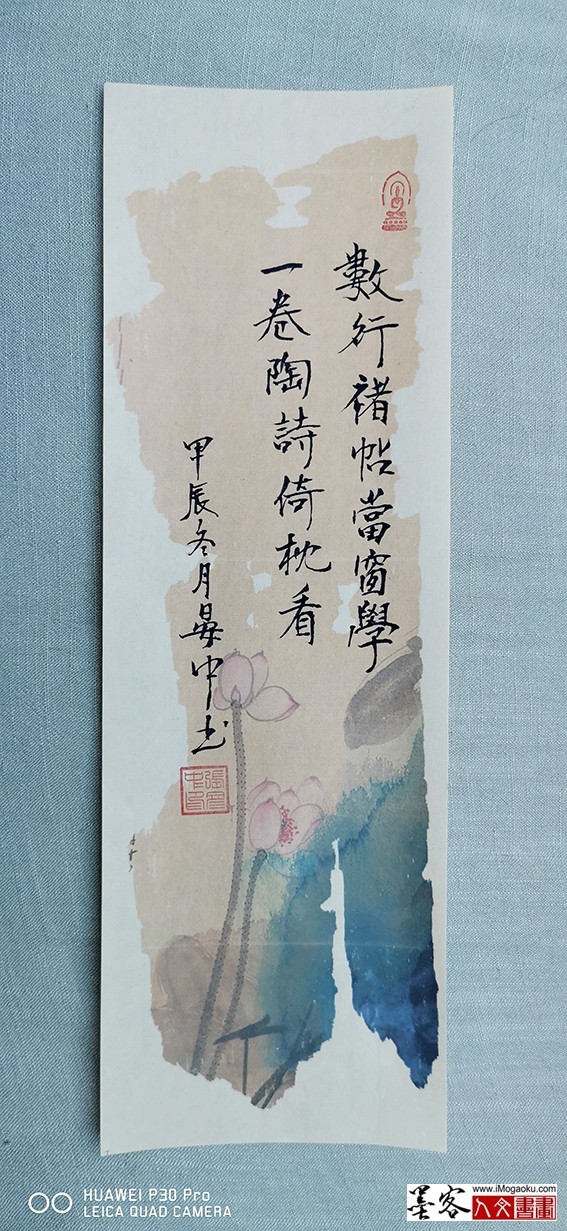 數行褚帖當窗學
一卷陶詩倚枕看
甲辰冬月晏中书
HUAWEI P30 Pro
LEICA QUAD CAMERA
墨客
www.iMogaoku.com
人文書畫